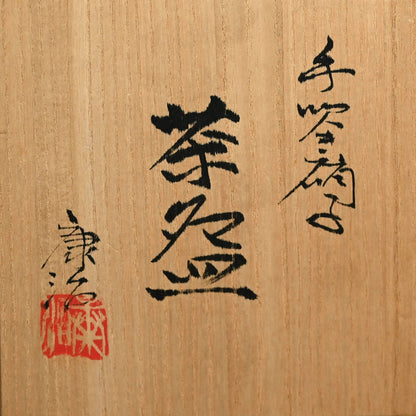 手吹硝子
茶盌
康治